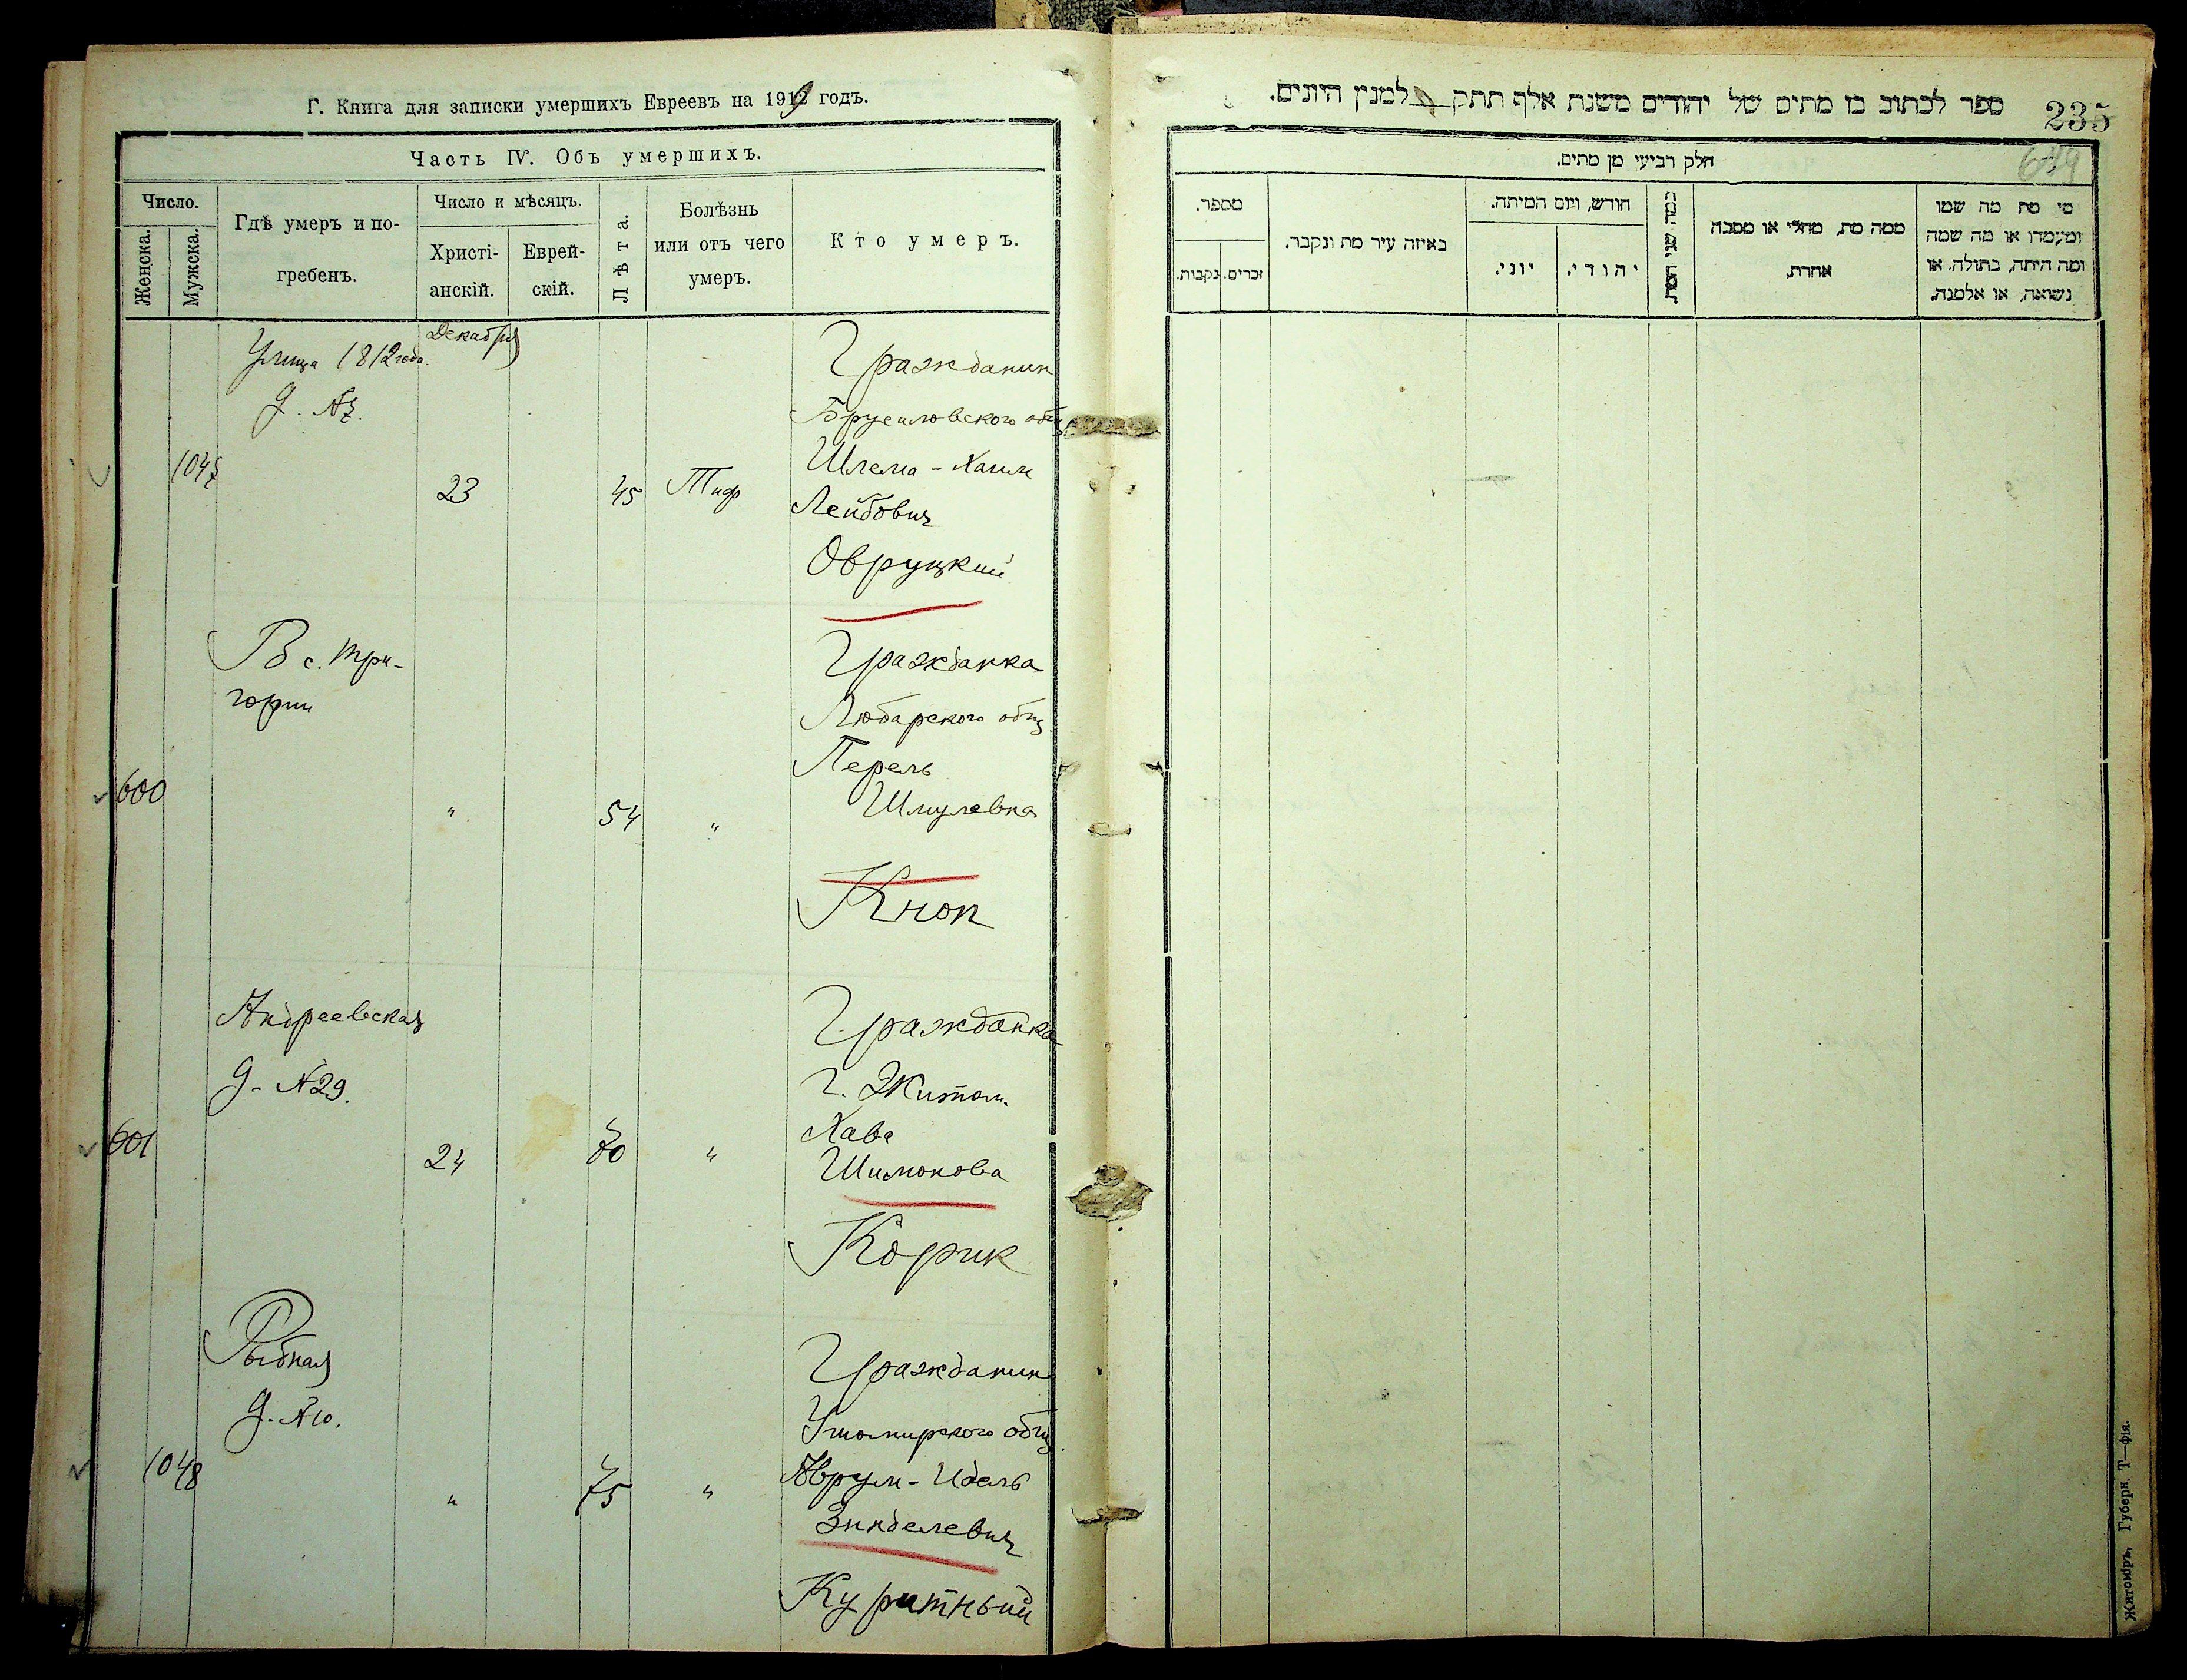 Г. Книга для записки умершихъ Евреевъ на 1919 годъ.
Часть IV. Объ умершихъ.
Число.
Женска.
Мужска.
Гдѣ умеръ и по-
гребенъ.
Число и мѣсяцъ.
Христі-
анскій.
Еврей-
скій.
Лѣта.
Болѣзнь
или отъ чего
умеръ.
Кто умеръ.
1047
Улица 1812 года.
д. №7.
Декабря
23
45
Тиф
Гражданин
Брусиловского общ
Шлема-Хаим
Лейбович
Овруцкий
600
В с. Три-
горьи
"
54
"
Гражданка
Любарского общ
Перель
Шмулевна
Кноп
601
Андреевская
д. №29.
24
70
"
Гражданка
г. Житом.
Хава
Шимонова
Корик
1048
Рыбная
д. №10.
"
75
"
Гражданин
Ушомирского общ.
Аврум-Идель
Зинделевич
Куритный
ספר לכתוב בו מתים של יהודים משנת אלף תתק למנין היונים.
235
649
חלק רביעי מן מתים.
מספר.
נקבות.
זכרים.
באיזה עיר מת ונקבר.
חודש, ויום המיתה.
יוני.
יהודי.
כמה שני המת
ממה מת, מחלי או מסבה
אחרת.
מי מת מה שמו
ומעמדו או מה שמה
ומה היתה, בתולה, או
נשואה, או אלמנה.
Житоміръ, Губерн. Т—фія.